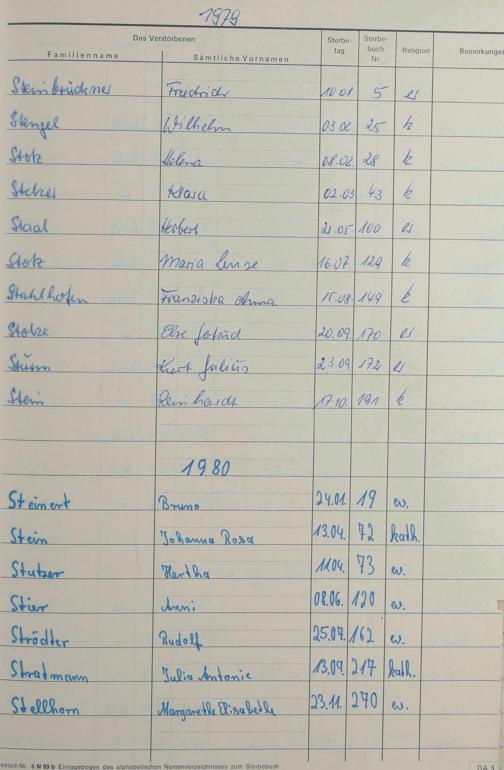 1979
Des Verstorbenen
Familienname Sämtliche Vornamen Sterbe-tag Sterbe-buch Nr. Religion Bemerkungen
Steinbrückner Friedrich 10 01 5 ev
Stengel Wilhelm 03.02 25 k
Stotz Helena 08.02. 28 k
Stelzer Klara 02.03 43 k
Staal Herbert 21.05. 100 ev
Stotz Maria Luise 16.07 129 k
Stahlhofen Franziska Anna 15.08. 149 k
Stolze Else 20.09. 170 ev
Sturm Kurt Julius 23 09. 172 ev
Stein Reinhardt 17.10. 191 k
1980
Steinert Bruno 24.01. 19 ev.
Stein Johanna Rosa 13.04. 72 kath.
Stutzer Hertha 11.04. 73 ev.
Stier Anni 08.06. 120 ev.
Strödter Rudolf 25.07. 162 ev.
Stratmann Julia Antonie 13.09. 217 kath.
Stellhorn Margarethe Elisabethe 23.11. 270 ev.
Nr. 5 N 03 b Einlagebogen des alphabetischen Namenverzeichnisses zum Sterbebuch DA 3